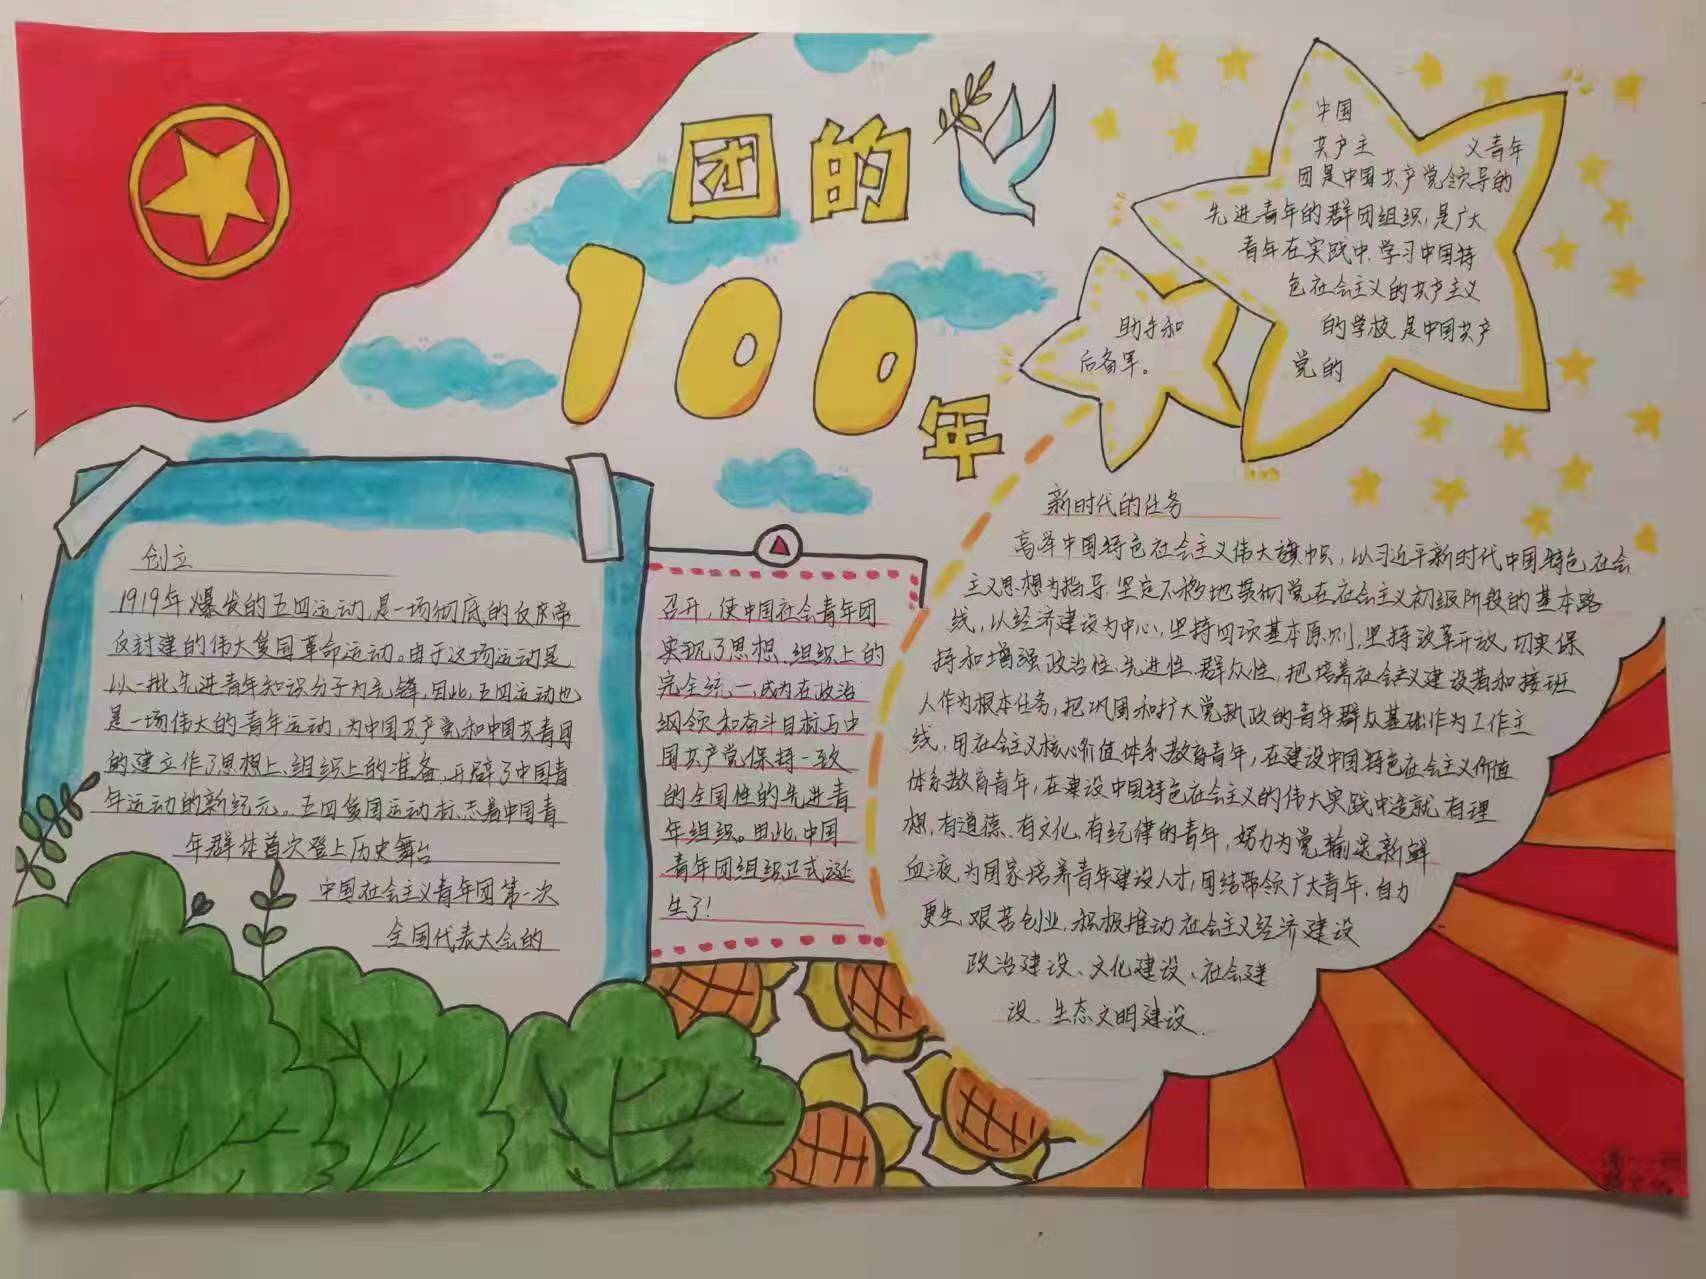 团的
100
年
中国
共产主 义青年
团是中国共产党领导的
先进青年的群团组织,是广大
青年在实践中学习中国特
色社会主义的共产主义
的学校,是中国共产
党的
助手和
后备军。
创立
1919年爆发的五四运动,是一场彻底的反帝
反封建的伟大爱国革命运动。由于这场运动是
以一批先进青年知识分子为先锋,因此,五四运动也
是一场伟大的青年运动,为中国共产党和中国共青团
的建立作了思想上、组织上的准备,开辟了中国青
年运动的新纪元。五四爱国运动标志着中国青
年群体首次登上历史舞台
中国社会主义青年团第一次
全国代表大会的
召开,使中国社会青年团
实现了思想、组织上的
完全统一,成为在政治
纲领和奋斗目标与中
国共产党保持一致
的全国性的先进青
年组织。由此,中国
青年团组织正式诞
生了!
新时代的任务
高举中国特色社会主义伟大旗帜,以习近平新时代中国特色社会
主义思想为指导,坚定不移地贯彻党在社会主义初级阶段的基本路
线,以经济建设为中心,坚持四项基本原则,坚持改革开放,切实保
持和增强政治性、先进性、群众性,把培养社会主义建设者和接班
人作为根本任务,把巩固和扩大党执政的青年群众基础作为工作主
线,用社会主义核心价值体系教育青年,在建设中国特色社会主义价值
体系教育青年,在建设中国特色社会主义的伟大实践中造就有理
想,有道德、有文化,有纪律的青年,努力为党输送新鲜
血液,为国家培养青年建设人才,团结带领广大青年,自力
更生、艰苦创业,积极推动社会主义经济建设
政治建设、文化建设、社会建
设、生态文明建设.